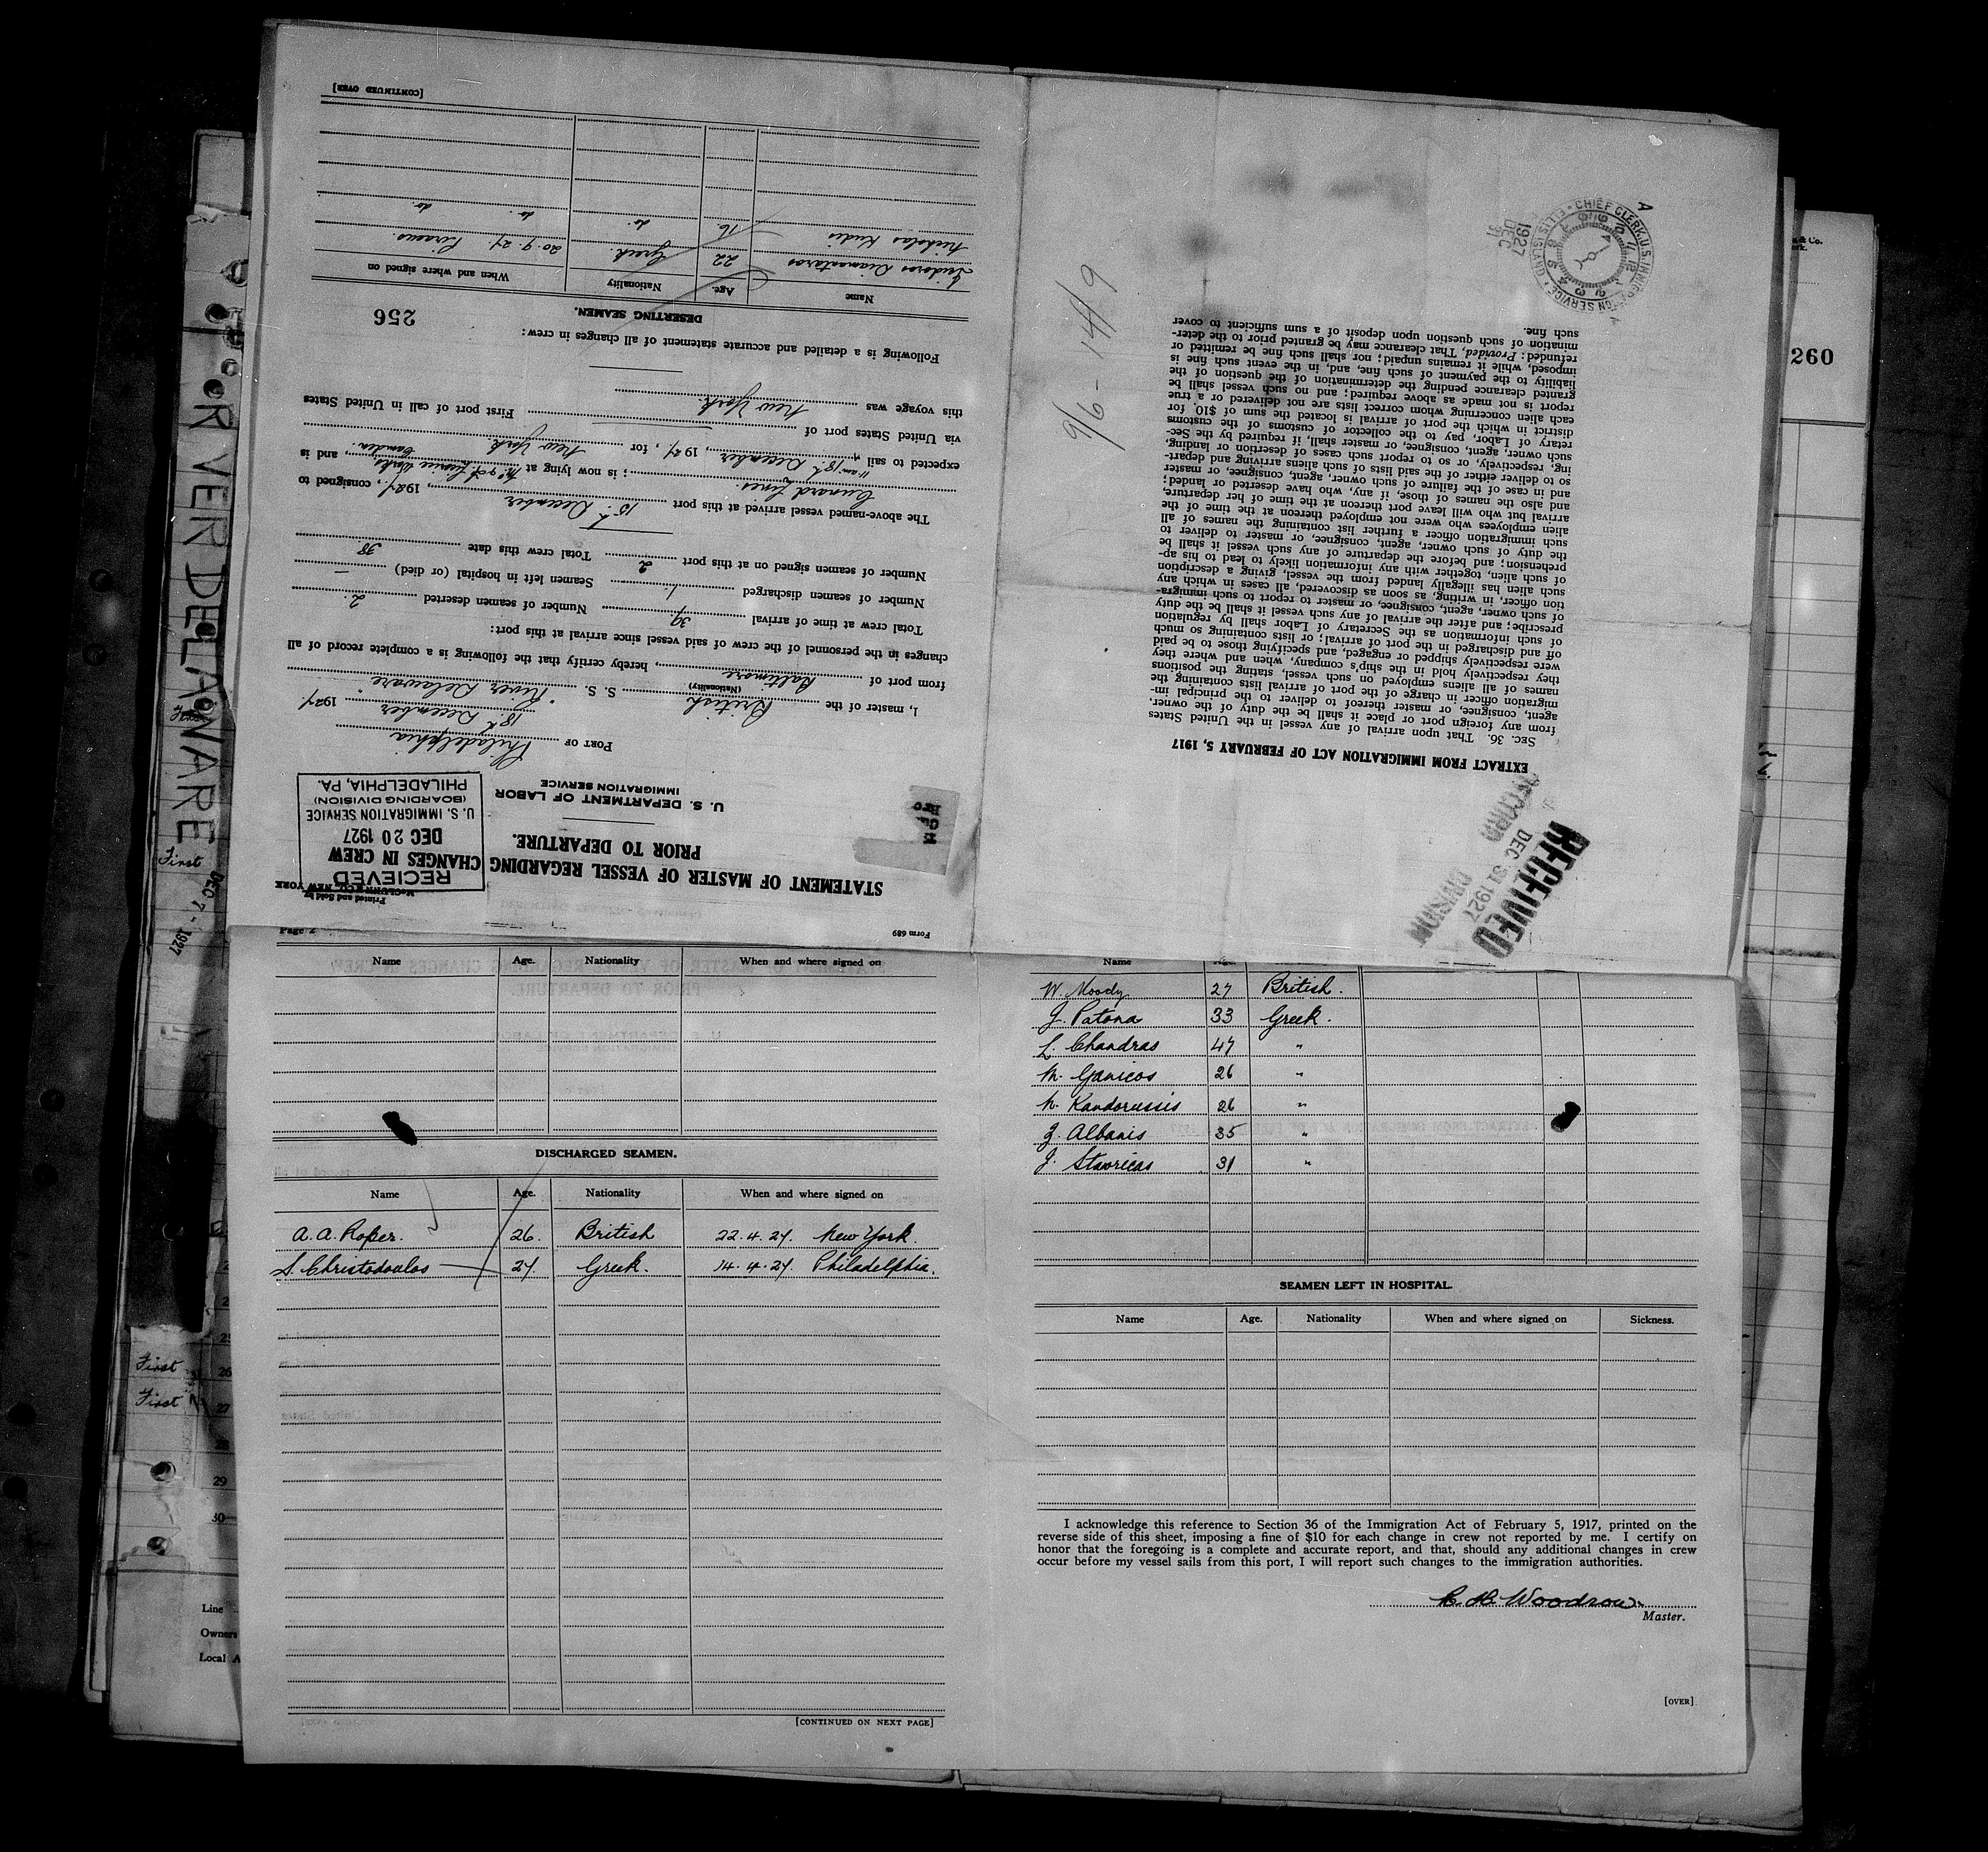 Form 689
Printed and Sold by
McCLUNN & CO., NEW YORK
STATEMENT OF MASTER OF VESSEL REGARDING CHANGES IN CREW
PRIOR TO DEPARTURE.
RECIEVED
DEC 20 1927
U. S. IMMIGRATION SERVICE
(BOARDING DIVISION)
PHILADELPHIA, PA.
U. S. DEPARTMENT OF LABOR
IMMIGRATION SERVICE
PORT OF Philadelphia
18th December 1927.
I, master of the British S. S. "River Delaware"
(Nationality)
from port of Baltimore, hereby certify that the following is a complete record of all
changes in the personnel of the crew of said vessel since arrival at this port:
Total crew at time of arrival 39 Number of seamen deserted 2.
Number of seamen discharged 1. Seamen left in hospital (or died) —
Number of seamen signed on at this port 2 Total crew this date 38.
The above-named vessel arrived at this port 15th December, 1927, consigned to
Cunard Lines. ; is now lying at Camden., and is
expected to sail 11 am 18th December, 1927, for New York
via United States port of
this voyage was New York. First port of call in United States
Following is a detailed and accurate statement of all changes in crew:
256
DESERTING SEAMEN.
Name Age. Nationality When and where signed on
Isidoros Diamantaros 22 Greek. 20.9.27 Piraeus.
Nicholas Kudis 16. do. do. do
[CONTINUED OVER]
RECEIVED
DEC 31 1927
RECORD DIVISION
EXTRACT FROM IMMIGRATION ACT OF FEBRUARY 5, 1917
SEC. 36. That upon arrival of any vessel in the United States
from any foreign port or place it shall be the duty of the owner,
agent, consignee, or master thereof to deliver to the principal im-
migration officer in charge of the port of arrival lists containing the
names of all aliens employed on such vessel, stating the positions
they respectively hold in the ship's company, when and where they
were respectively shipped or engaged, and specifying those to be paid
off and discharged in the port of arrival; or lists containing so much
of such information as the Secretary of Labor shall by regulation
prescribe; and after the arrival of any such vessel it shall be the duty
of such owner, agent, consignee, or master to report to such immigra-
tion officer, in writing, as soon as discovered, all cases in which any
such alien has illegally landed from the vessel, giving a description
of such alien, together with any information likely to lead to his ap-
prehension; and before the departure of any such vessel it shall be
the duty of such owner, agent, consignee, or master to deliver to
such immigration officer a further list containing the names of all
alien employees who were not employed thereon at the time of the
arrival but who will leave port thereon at the time of her departure,
and also the names of those, if any, who have deserted or landed;
and in case of the failure of such owner, agent, consignee, or master
so to deliver either of the said lists of such aliens arriving and depart-
ing, respectively, or so to report such cases of desertion or landing,
such owner, agent, consignee, or master shall, if required by the Sec-
retary of Labor, pay to the collector of customs of the customs
district in which the port of arrival is located the sum of $10 for
each alien concerning whom correct lists are not delivered or a true
report is not made as above required; and no such vessel shall be
granted clearance pending the determination of the question of the
liability to the payment of such fine, and, in the event such fine is
imposed, while it remains unpaid; nor shall such fine be remitted or
refunded: Provided, That clearance may be granted prior to the deter-
mination of such question upon deposit of a sum sufficient to cover
such fine.
9/6 - 14/9
CHIEF CLERK, U.S. IMMIGRATION SERVICE ELLIS ISLAND
1927
DEC
31
260
RIVER DELAWARE
DEC 7 - 1927
First
First
First
26
27
28
29
30
Line
Owners
Local A
Page 2
Name Age. Nationality When and where signed on
DISCHARGED SEAMEN.
Name Age. Nationality When and where signed on
A. A. Roper. 26. British 22.4.27. New York.
S. Christodoulos 27. Greek. 14.4.27. Philadelphia.
[CONTINUED ON NEXT PAGE]
Name Age
W. Moody 27 British.
J. Patona 33 Greek.
L. Chandras 47 "
M. Ganicos 26 "
N. Kandorussis 26 "
J. Albanis 35 "
J. Stavricas 31 "
SEAMEN LEFT IN HOSPITAL.
Name Age. Nationality When and where signed on Sickness.
I acknowledge this reference to Section 36 of the Immigration Act of February 5, 1917, printed on the
reverse side of this sheet, imposing a fine of $10 for each change in crew not reported by me. I certify on
honor that the foregoing is a complete and accurate report, and that, should any additional changes in crew
occur before my vessel sails from this port, I will report such changes to the immigration authorities.
C. H. Woodrow.
Master.
[OVER]